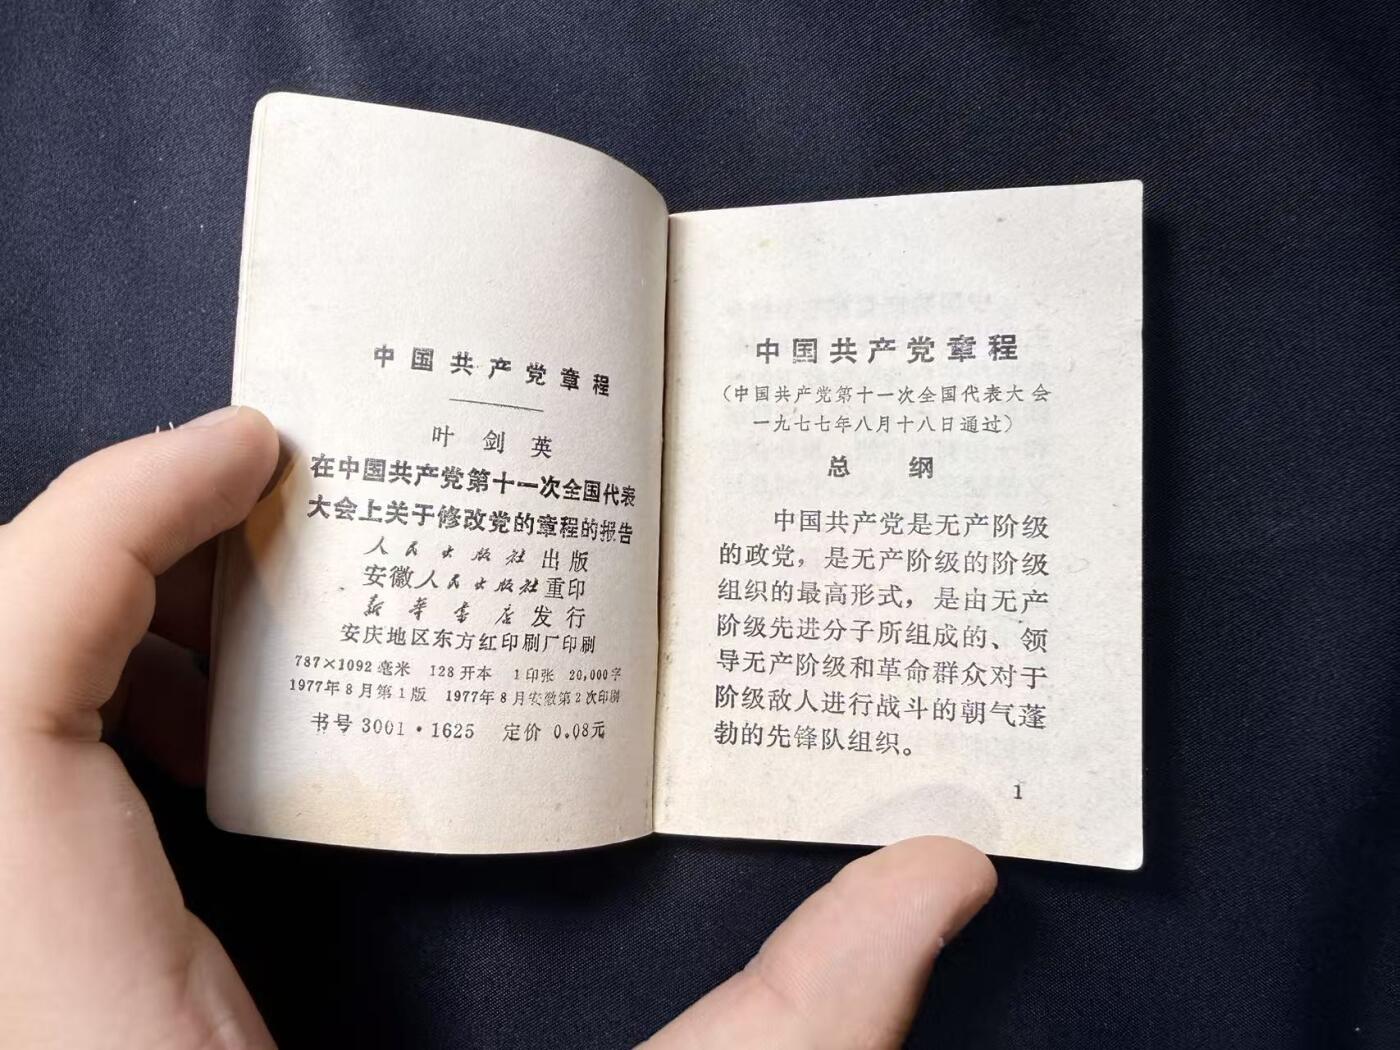 中国共产党章程
叶剑英
在中国共产党第十一次全国代表
大会上关于修改党的章程的报告
人民出版社出版
安徽人民出版社重印
新华书店发行
安庆地区东方红印刷厂印刷
787×1092毫米 128开本 1印张 20,000字
1977年8月第1版 1977年8月安徽第2次印刷
书号 3001·1625 定价 0.08元
中国共产党章程
（中国共产党第十一次全国代表大会
一九七七年八月十八日通过）
总纲
中国共产党是无产阶级
的政党，是无产阶级的阶级
组织的最高形式，是由无产
阶级先进分子所组成的、领
导无产阶级和革命群众对于
阶级敌人进行战斗的朝气蓬
勃的先锋队组织。
1